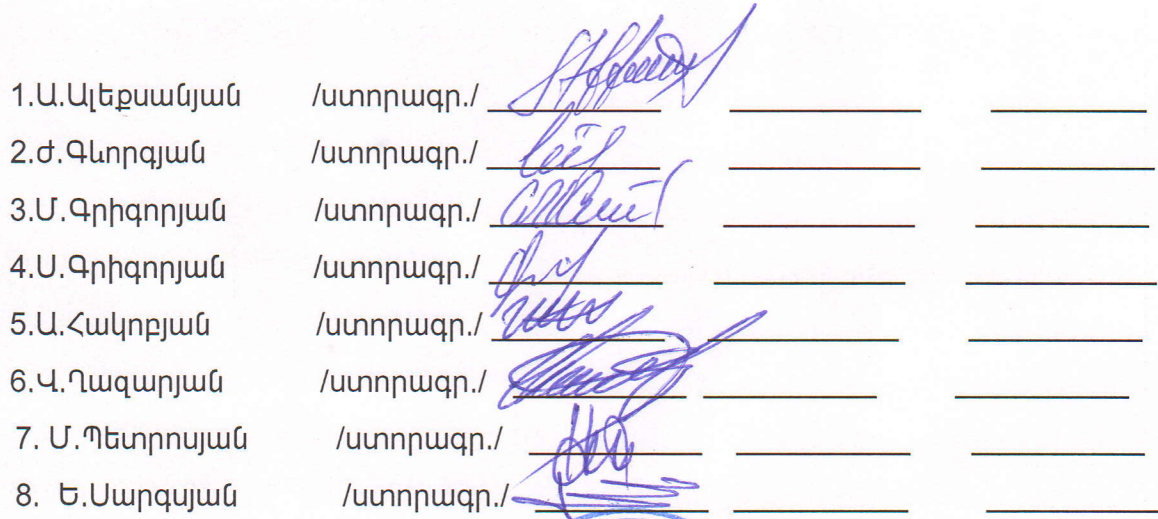 1.Ա.Ալեքսանյան /ստորագր./
2.Ժ.Գևորգյան /ստորագր./
3.Մ.Գրիգորյան /ստորագր./
4.Ս.Գրիգորյան /ստորագր./
5.Ա.Հակոբյան /ստորագր./
6.Վ.Ղազարյան /ստորագր./
7. Մ.Պետրոսյան /ստորագր./
8. Ե.Սարգսյան /ստորագր./